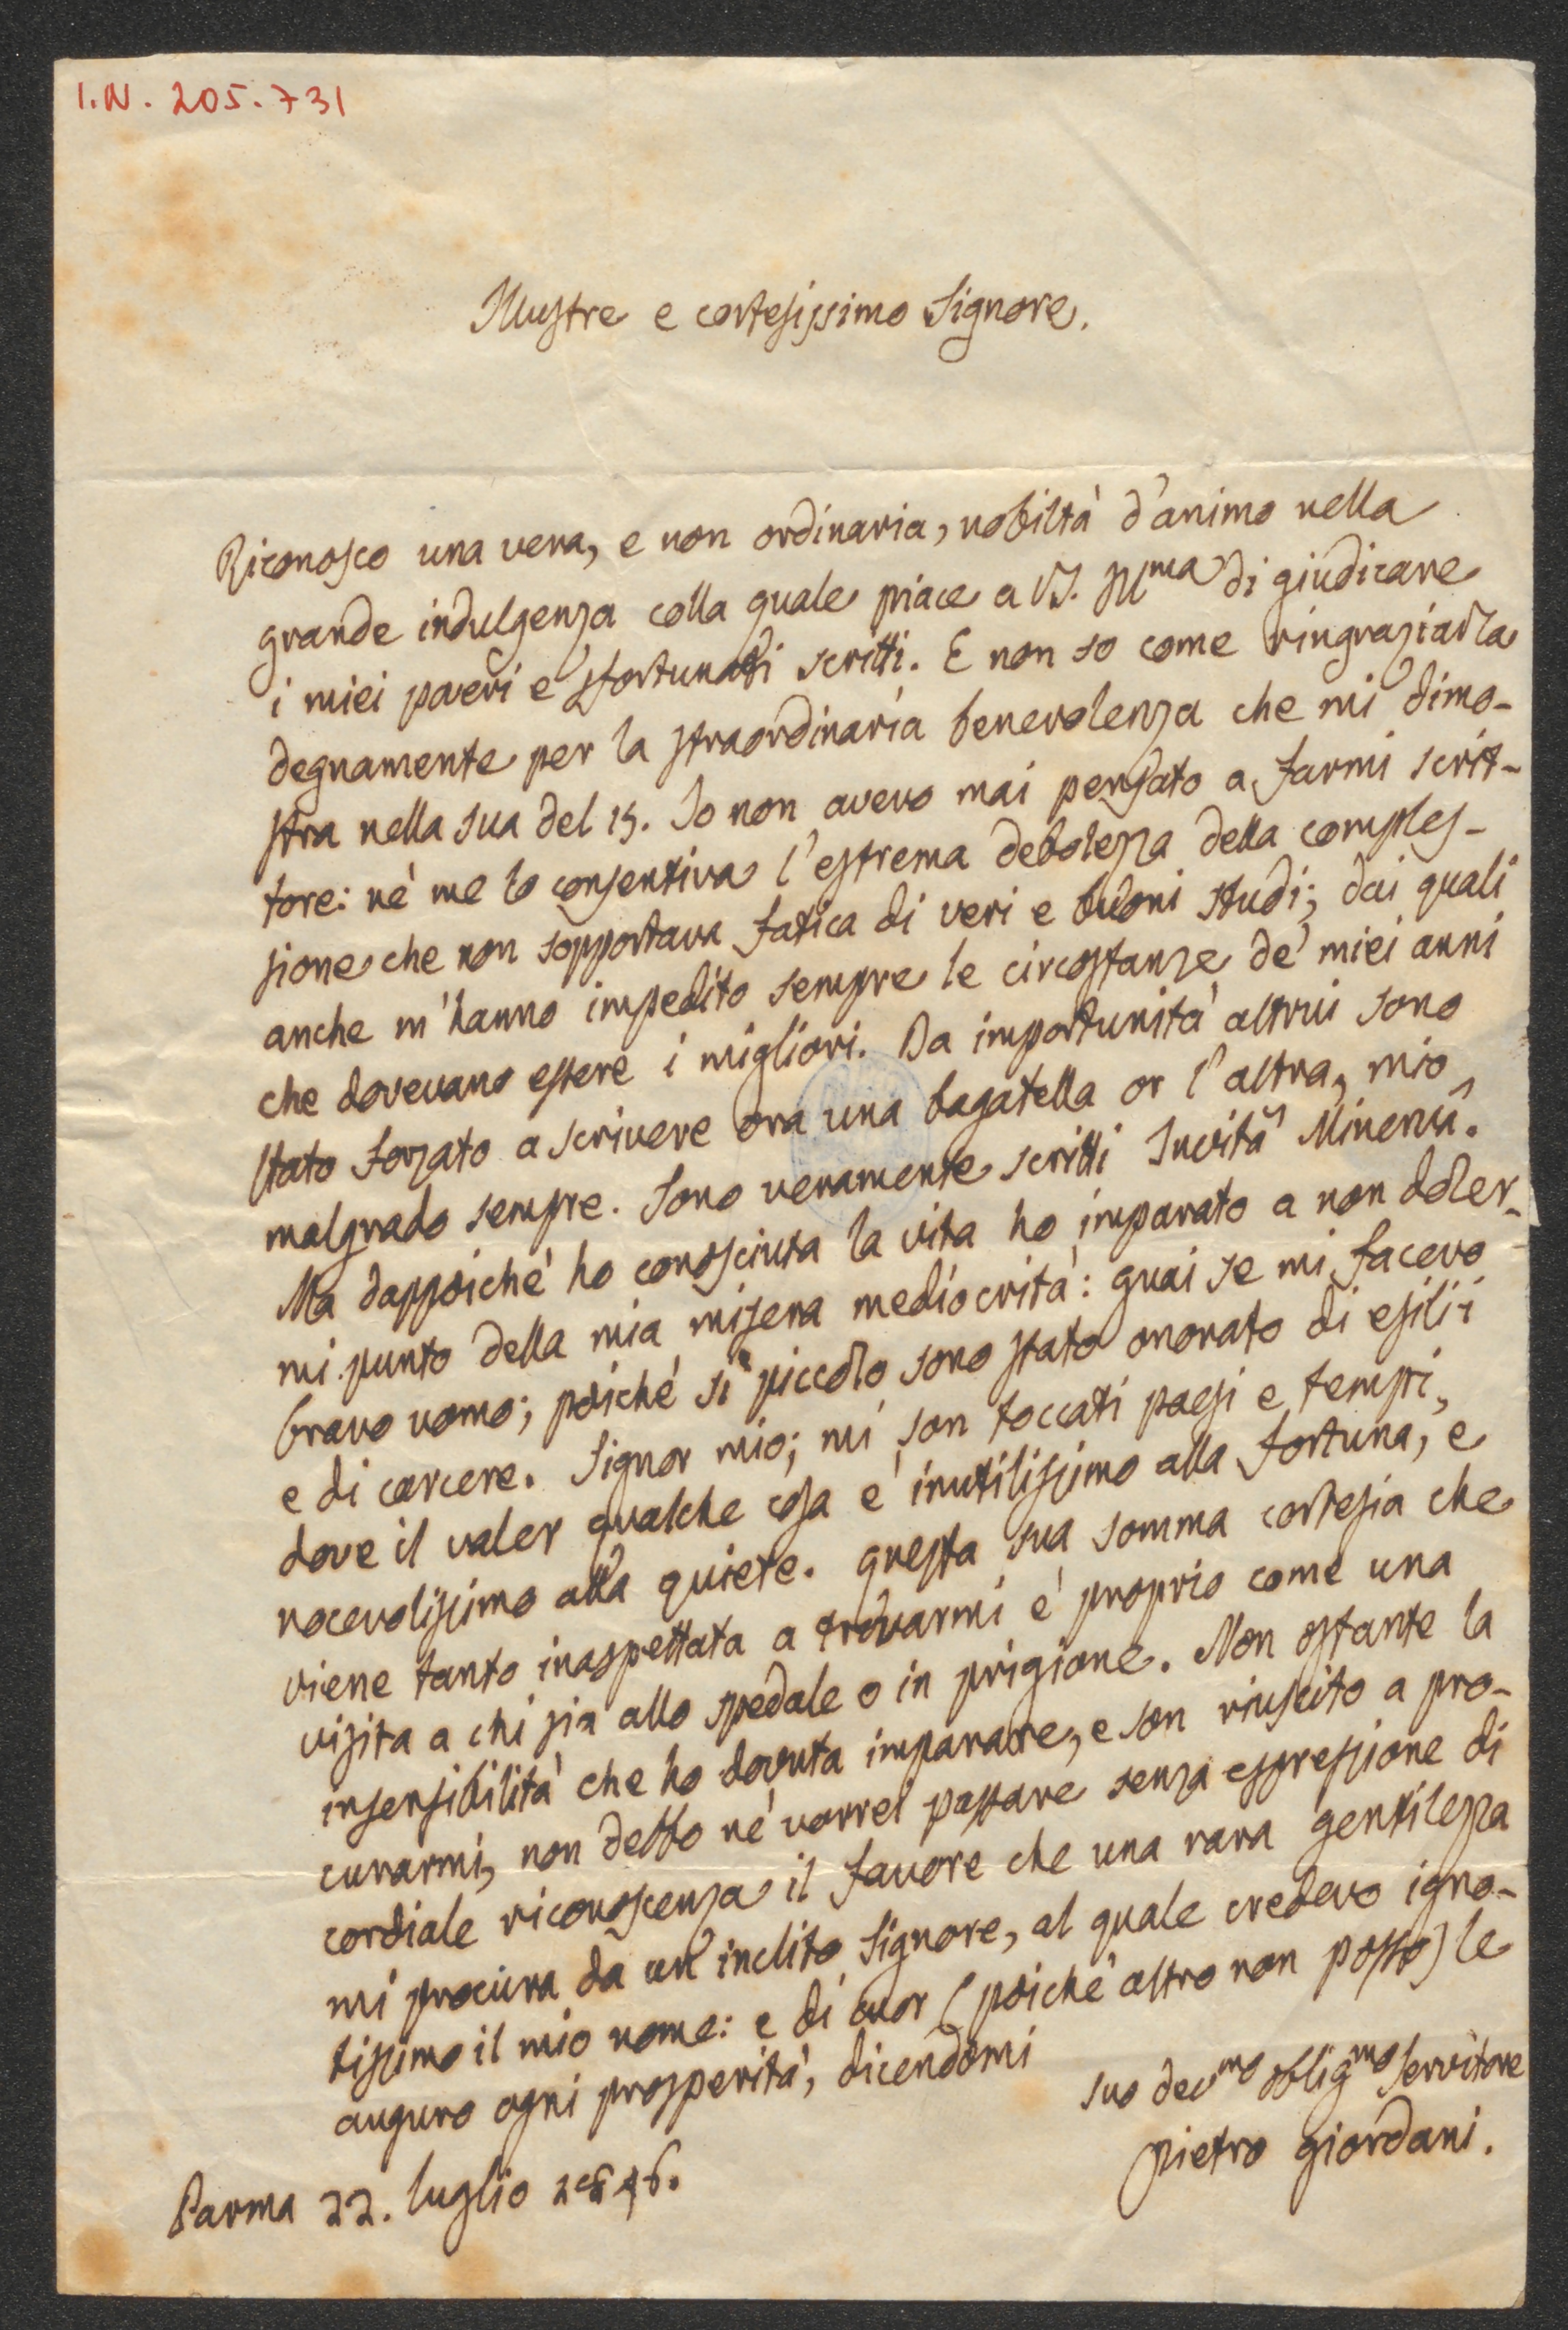 I.N. 205.731
Illustre e cortesissimo Signore.
Riconosco una vera, e non ordinaria, nobiltà d'animo nella
grande indulgenza colla quale piace a V.S. Illma di giudicare
i miei poveri e sfortunati scritti. E non so come ringraziarla
degnamente per la straordinaria benevolenza che mi dimo-
stra nella sua del 15. Io non avevo mai pensato a farmi scrit-
tore: nè me lo consentiva l'estrema debolezza della comples-
sione che non sopportava fatica di veri e buoni studi; dai quali
anche m'hanno impedito sempre le circostanze de' miei anni
che dovevano essere i migliori. Da importunità altrui sono
stato forzato a scrivere ora una bagatella or l'altra, mio
malgrado sempre. Sono veramente scritti Invitâ Minervâ.
Ma dappoichè ho conosciuta la vita ho imparato a non doler-
mi punto della mia misera mediocrità: guai se mi facevo
bravo uomo; poichè sì piccolo sono stato onorato di esilii
e di carcere. Signor mio; mi son toccati paesi e tempi,
dove il valer qualche cosa è inutilissimo alla fortuna, e
nocevolissimo alla quiete. questa sua somma cortesia che
viene tanto inaspettata a trovarmi è proprio come una
visita a chi sia allo spedale o in prigione. Non ostante la
insensibilità che ho dovuta imparare, e son riuscito a pro-
curarmi, non debbo nè vorrei passare senza espressione di
cordiale riconoscenza il favore che una rara gentilezza
mi procura da un inclito Signore, al quale credevo igno-
tissimo il mio nome: e di cuor (poichè altro non posso) le
auguro ogni prosperità, dicendomi
suo devmo obligmo servitore
pietro giordani.
Parma 22. luglio